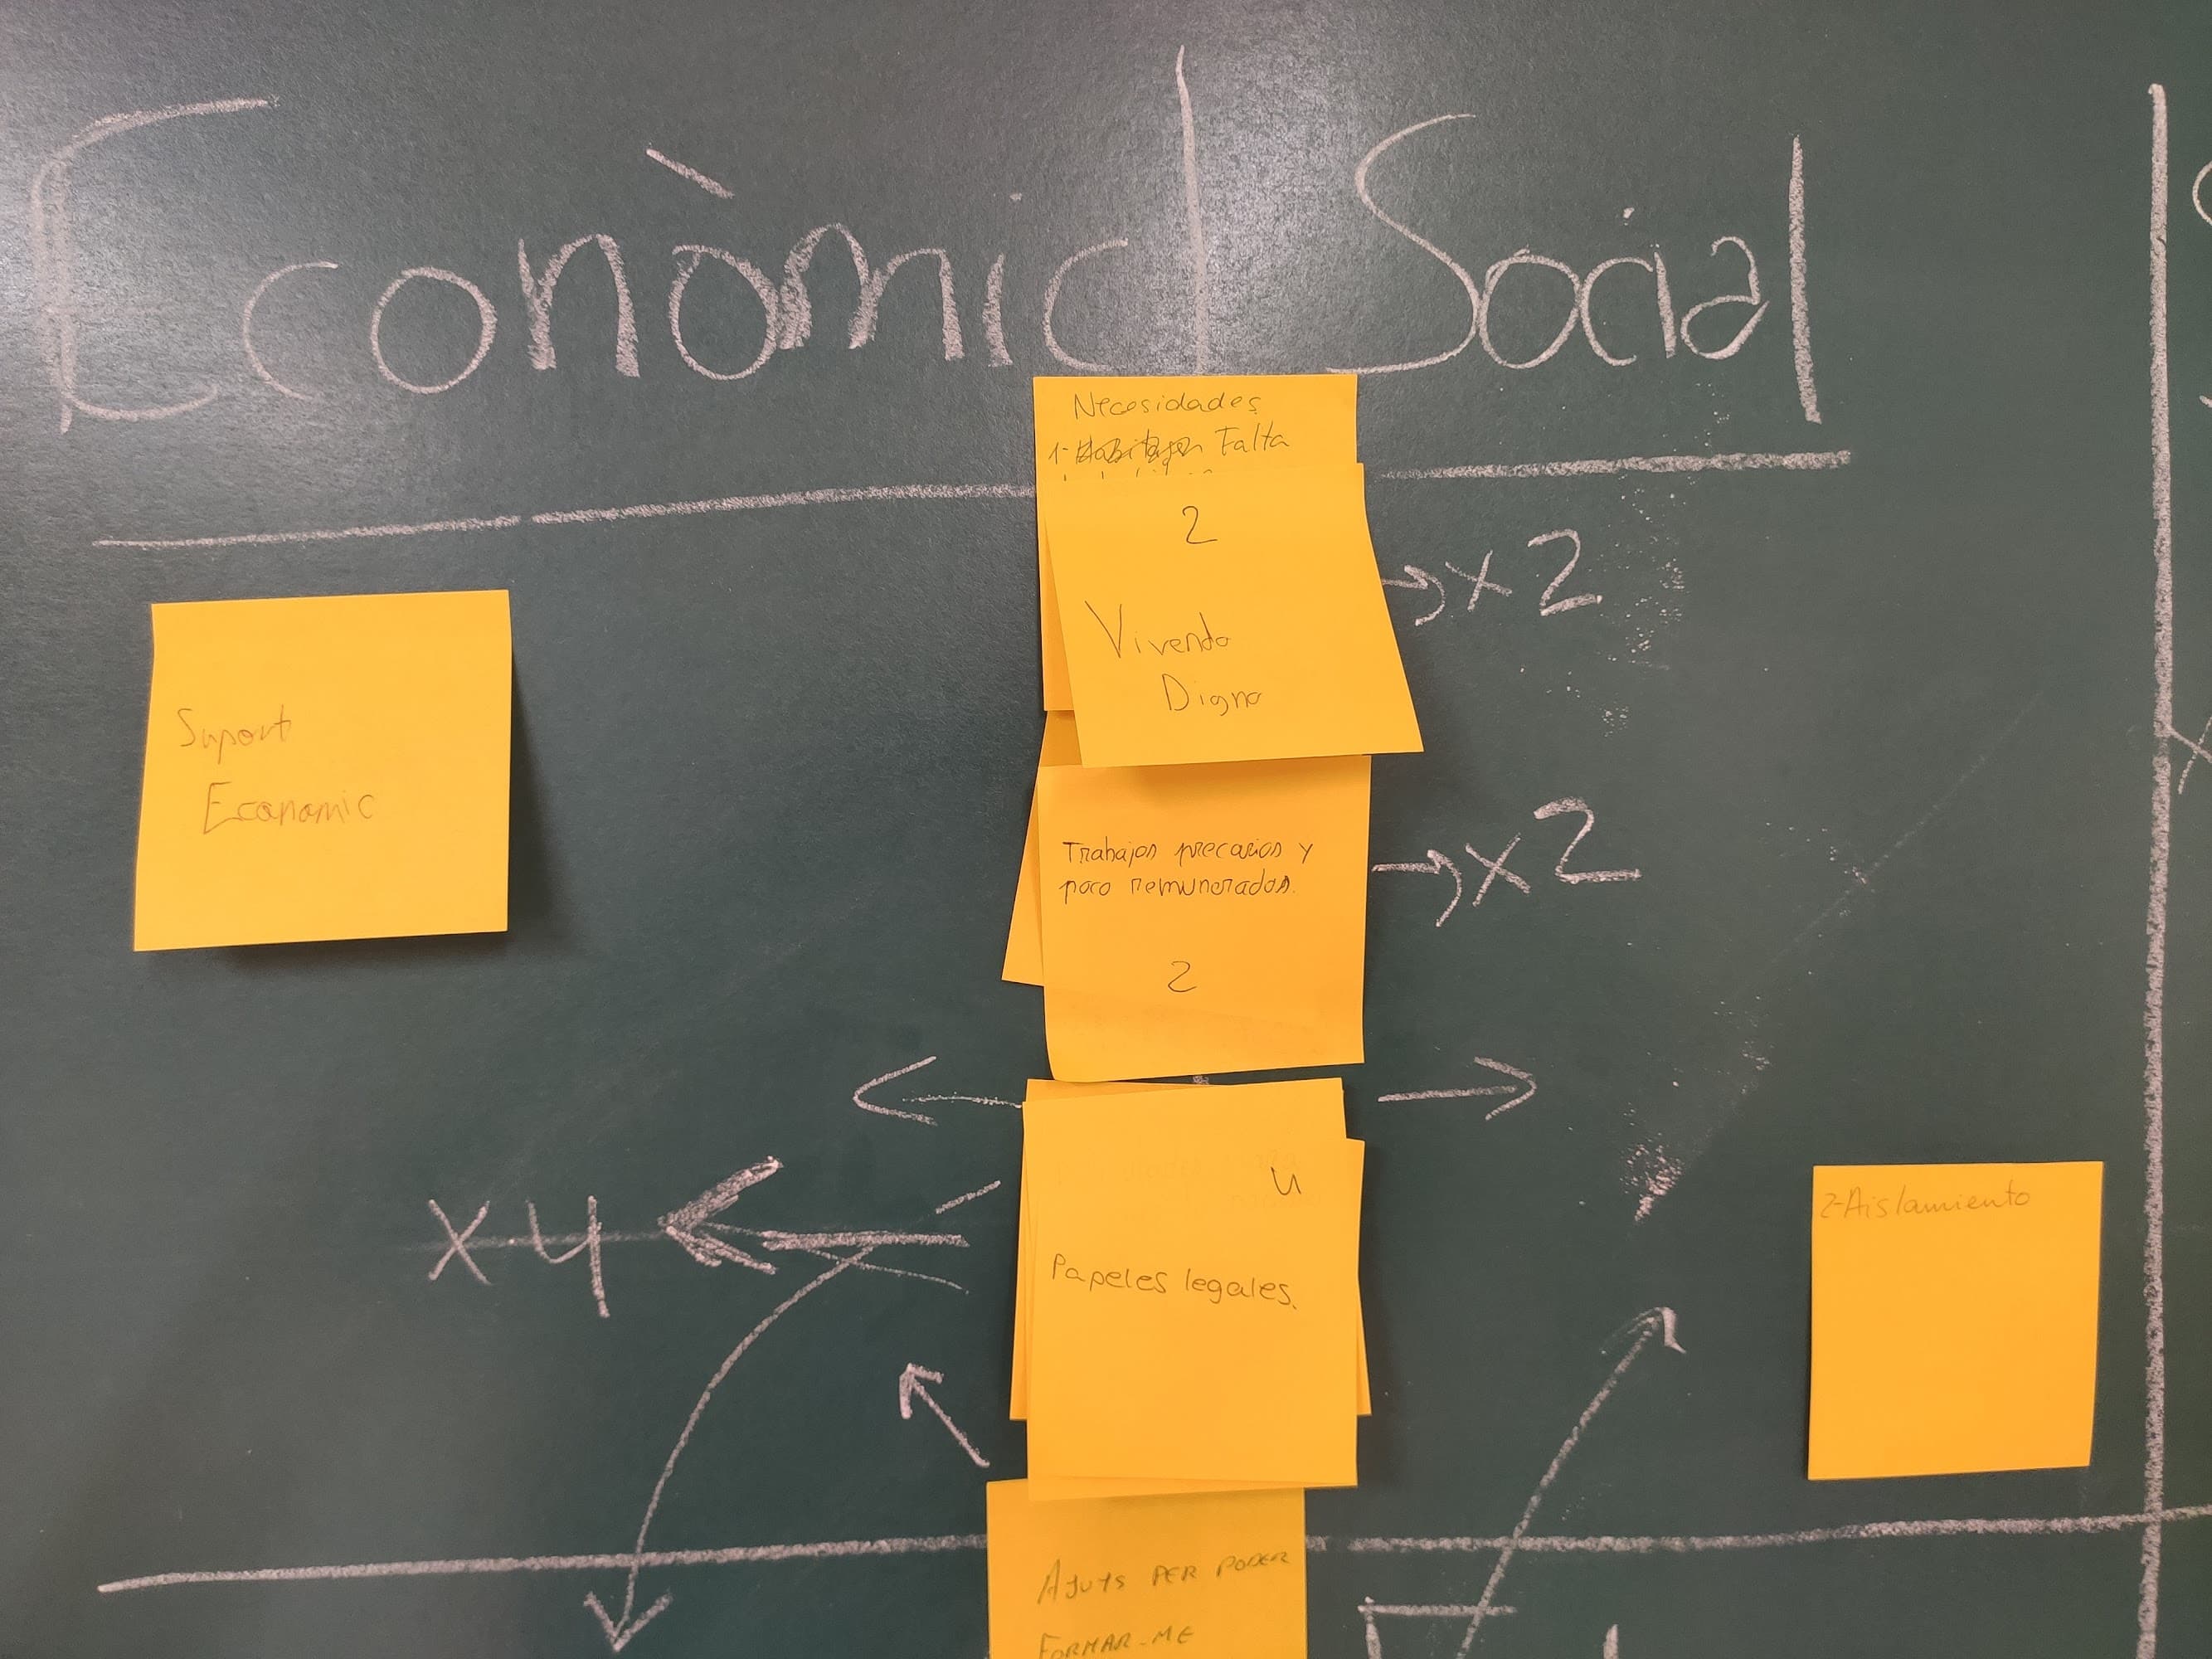 Econòmic Social
Necesidades
1- Falta
2
Vivenda
Digna
→x2
Suport
Economic
Trabajos precarios y
poco remunerados.
2
→x2
x4
4
Papeles legales.
2-Aislamiento
AJUTS PER PODER
FORMAR-ME